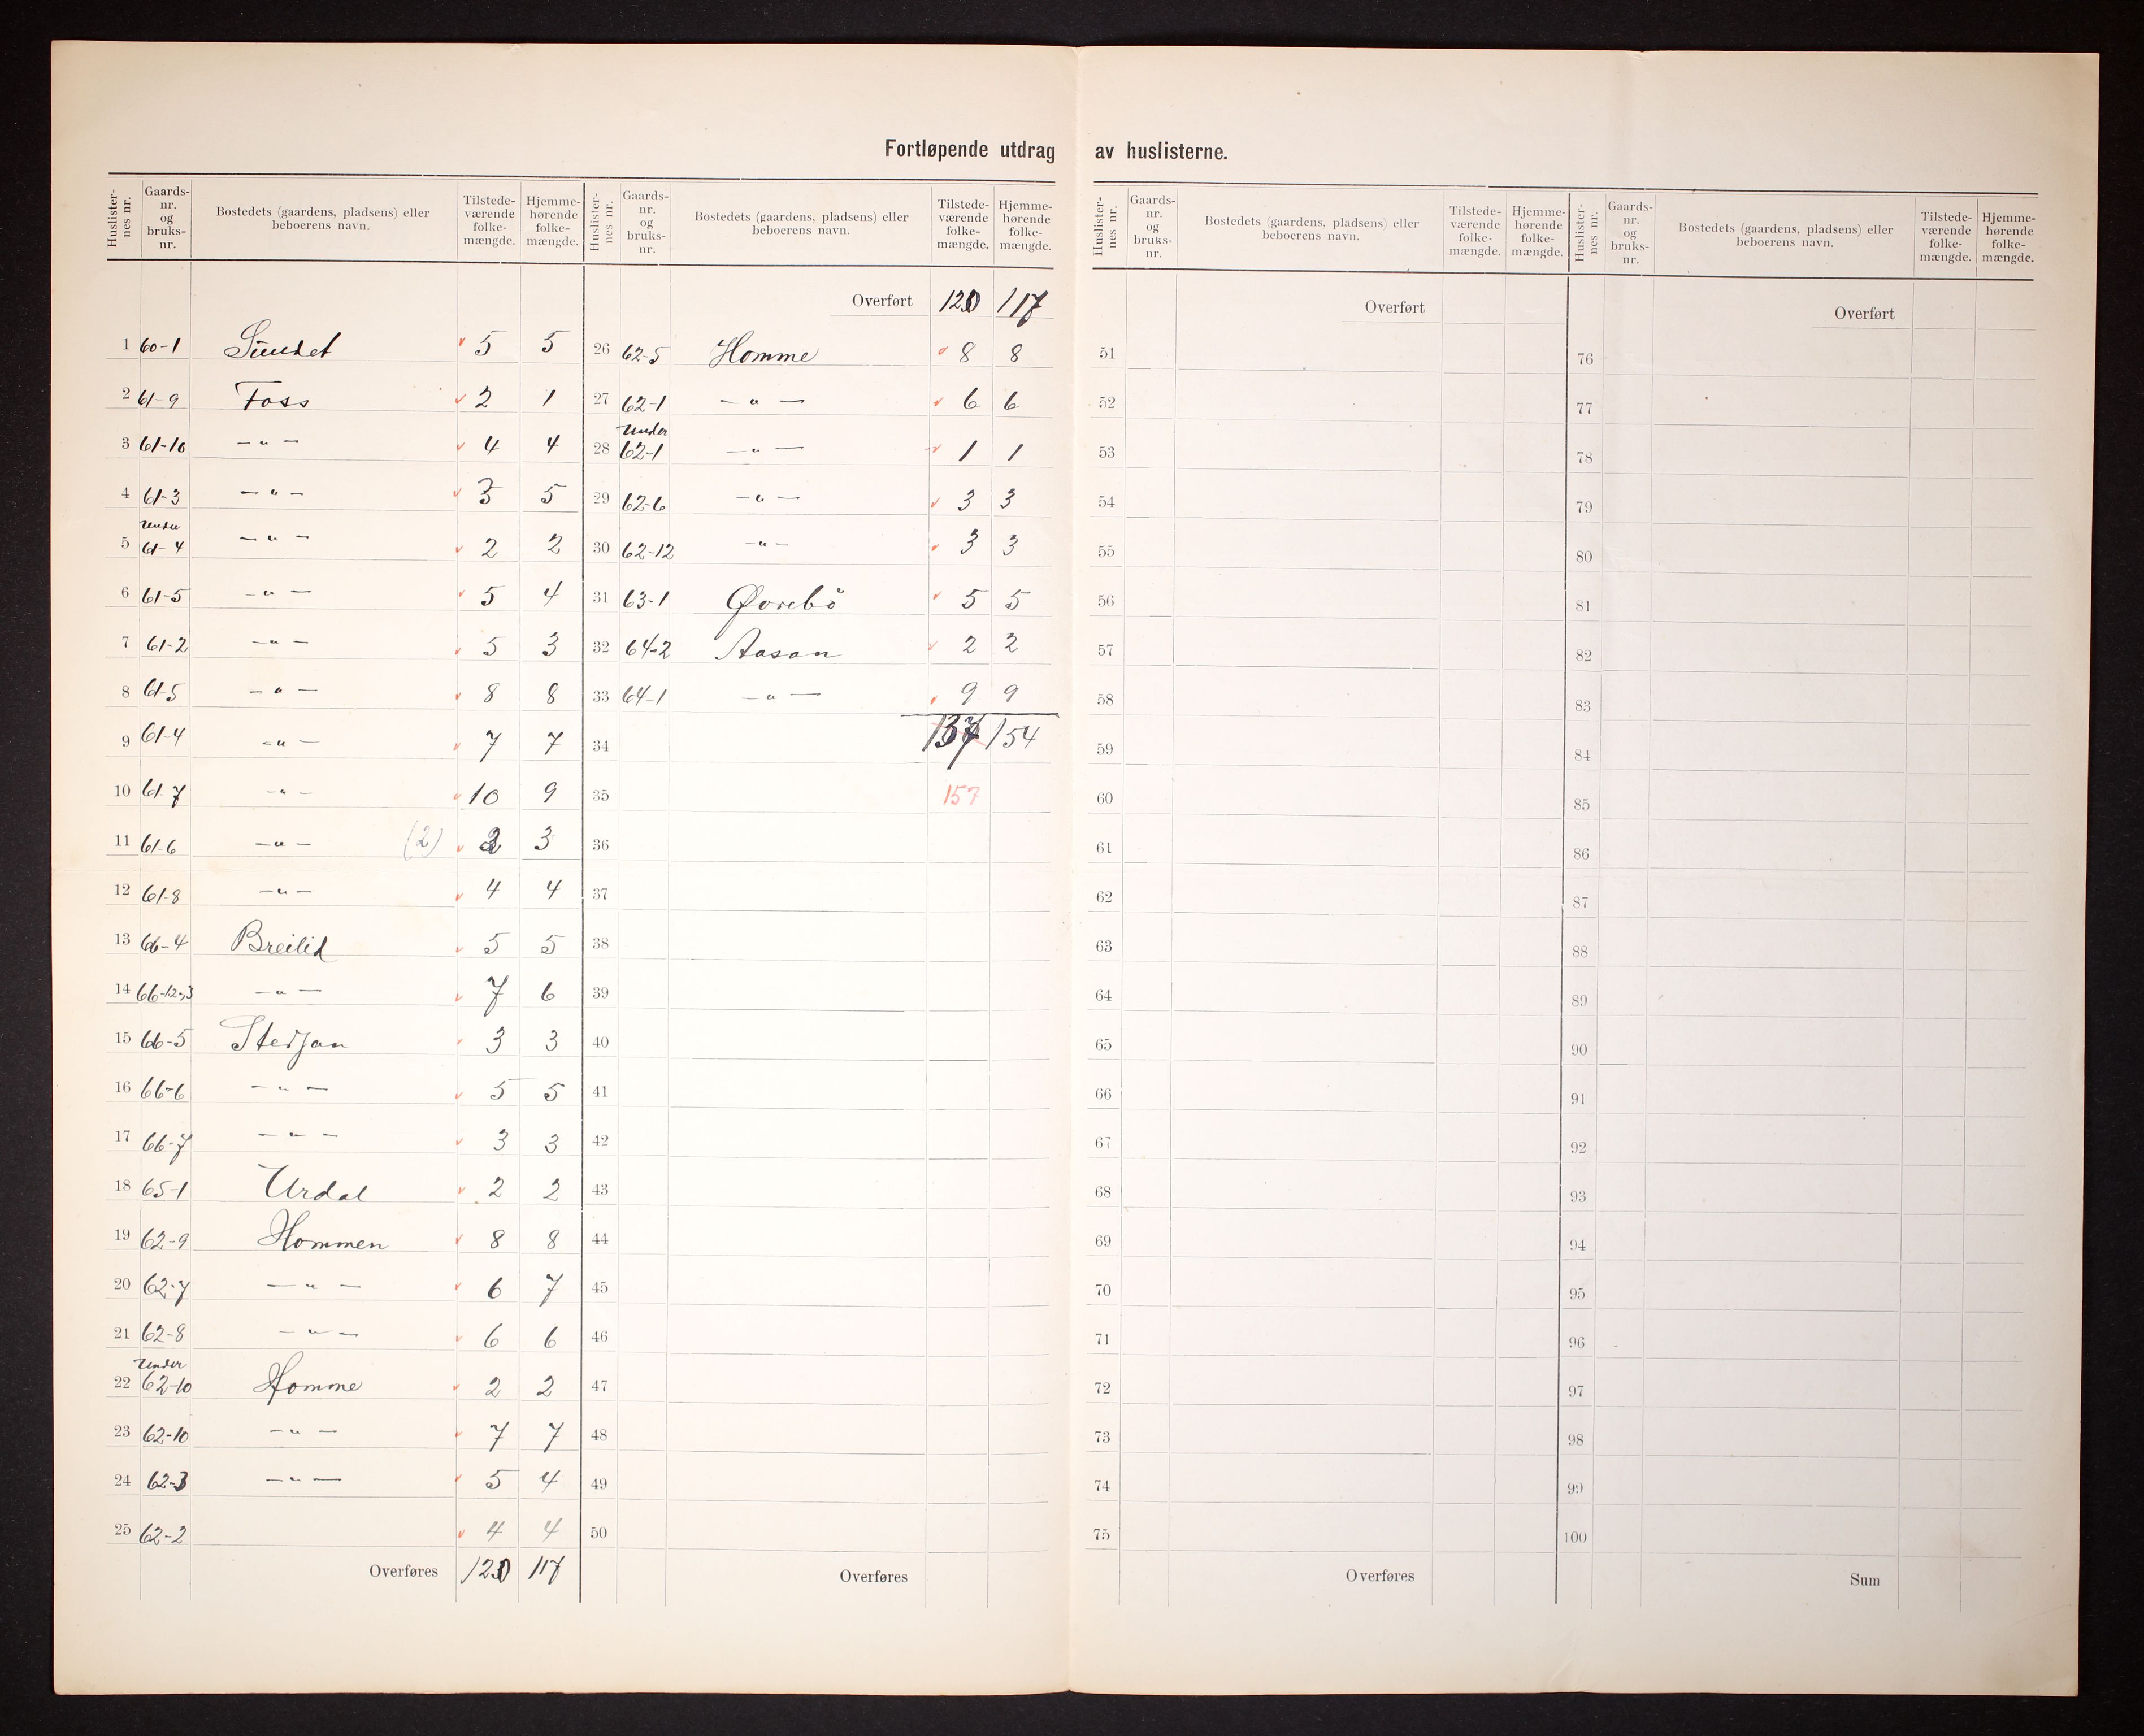 Fortløpende utdrag av huslisterne.
Huslister-nes nr. | Gaards-nr. og bruks-nr. | Bostedets (gaardens, pladsens) eller beboerens navn. | Tilstede-værende folke-mængde. | Hjemme-hørende folke-mængde.
1 60-1 Sundet 5 5
2 61-9 Foss 2 1
3 61-10 -"- 4 4
4 61-3 -"- 3 5
5 Under 61-4 -"- 2 2
6 61-5 -"- 5 4
7 61-2 -"- 5 3
8 61-5 -"- 8 8
9 61-4 -"- 7 7
10 61-7 -"- 10 9
11 61-6 -"- (2) 2 3
12 61-8 -"- 4 4
13 66-4 Breilid 5 5
14 66-12,3 -"- 7 6
15 66-5 Stedjan 3 3
16 66-6 -"- 5 5
17 66-7 -"- 3 3
18 65-1 Urdal 2 2
19 62-9 Hommen 8 8
20 62-7 -"- 6 7
21 62-8 -"- 6 6
22 Under 62-10 Homme 2 2
23 62-10 -"- 7 7
24 62-3 -"- 5 4
25 62-2 4 4
Overføres 120 117
Huslister-nes nr. | Gaards-nr. og bruks-nr. | Bostedets (gaardens, pladsens) eller beboerens navn. | Tilstede-værende folke-mængde. | Hjemme-hørende folke-mængde.
Overført 120 117
26 62-5 Homme 8 8
27 62-1 -"- 6 6
28 Under 62-1 -"- 1 1
29 62-6 -"- 3 3
30 62-12 -"- 3 3
31 63-1 Øvrebö 5 5
32 64-2 Aasan 2 2
33 64-1 -"- 9 9
34 137 154
35 157
36
37
38
39
40
41
42
43
44
45
46
47
48
49
50
Overføres
Huslister-nes nr. | Gaards-nr. og bruks-nr. | Bostedets (gaardens, pladsens) eller beboerens navn. | Tilstede-værende folke-mængde. | Hjemme-hørende folke-mængde.
Overført
51
52
53
54
55
56
57
58
59
60
61
62
63
64
65
66
67
68
69
70
71
72
73
74
75
Overføres
Huslister-nes nr. | Gaards-nr. og bruks-nr. | Bostedets (gaardens, pladsens) eller beboerens navn. | Tilstede-værende folke-mængde. | Hjemme-hørende folke-mængde.
Overført
76
77
78
79
80
81
82
83
84
85
86
87
88
89
90
91
92
93
94
95
96
97
98
99
100
Sum